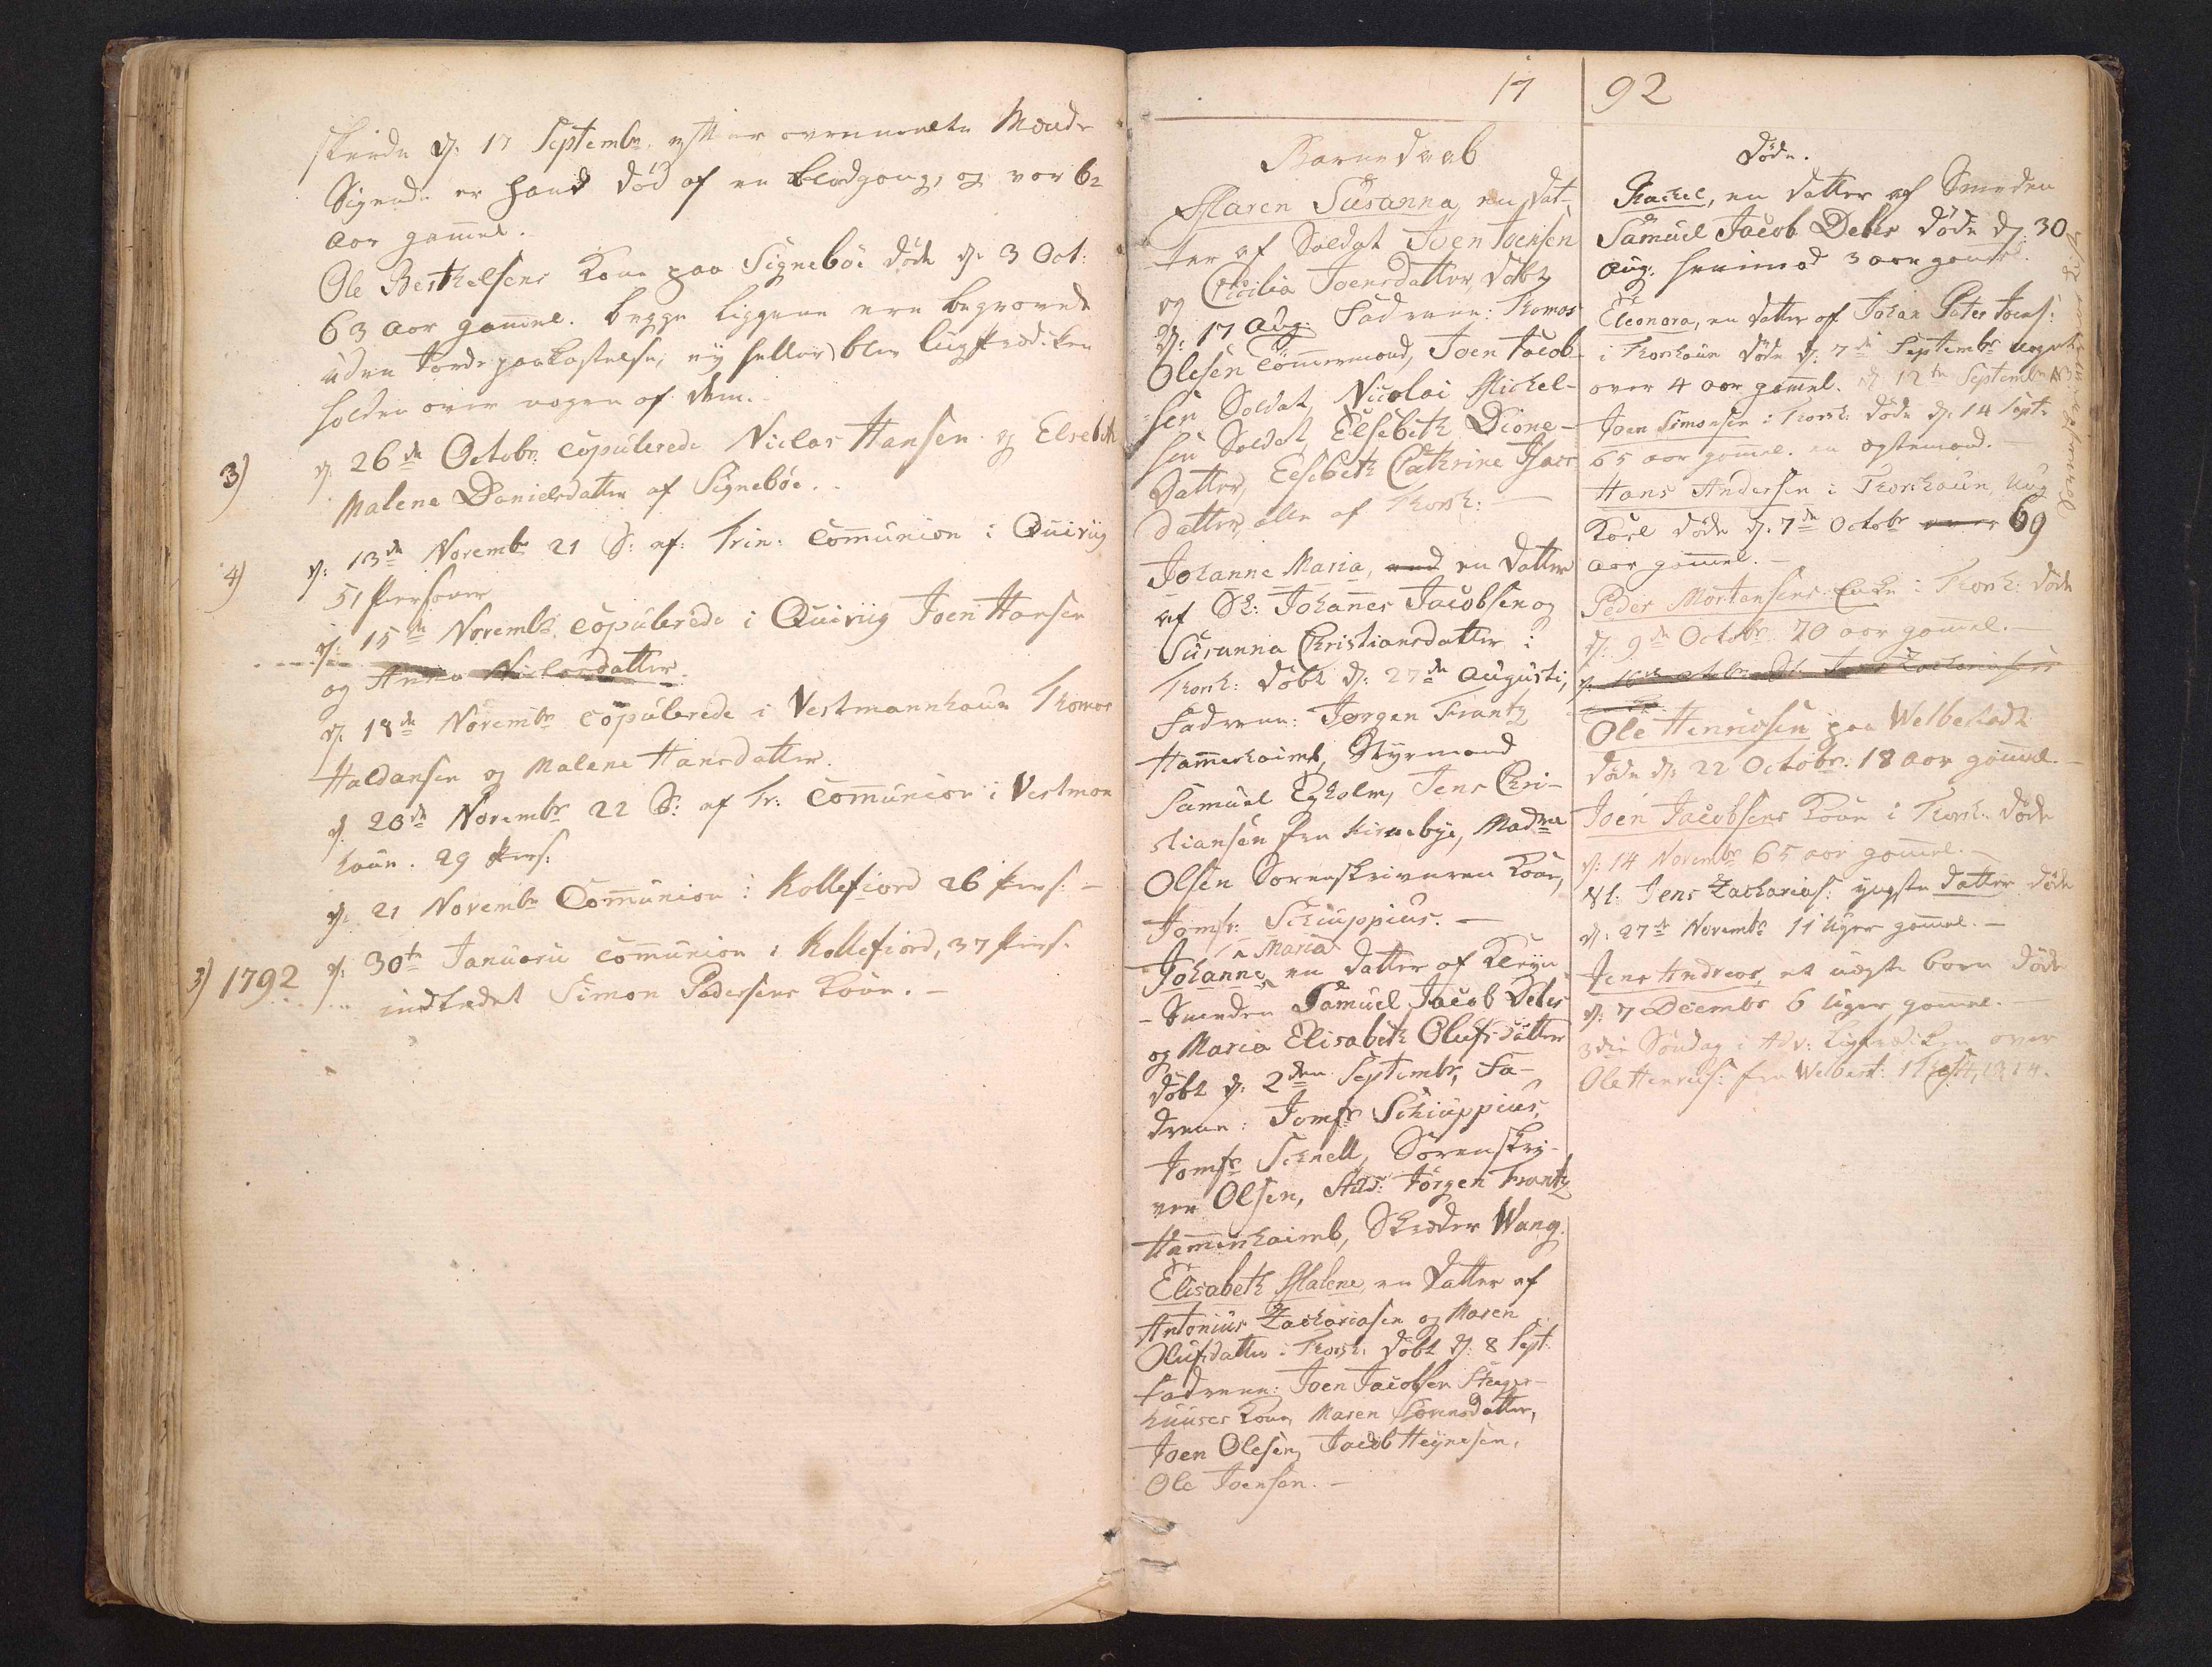 skeede d: 17 Septembr. efter ovenmelte Mænds
Sigende er hand død af en Blodgang, og var 62
aar gammel.
Ole Berthelsens Kone paa Signebøe døde d: 3 Oct:
63 aar gammel. begge Liggene ere begravede
uden Jords paakastelse, ey heller blev Liigprædiken
holden over nogen af dem.
3) d. 26de Octobr. copulerede Niclas Hansen og Elsebeth
Malene Danielsdatter af Signebøe.
4) d: 13de Novembr 21 S: ef: Trin: Communion i Quiviig
51 Personer
d: 15de Novembr. copulerede i Quiviig Joen Hansen
og Anna Niclasdatter.
d. 18de Novembr copulerede i Vestmannhavn Thomas
Haldansen og Malene Hansdatter.
d. 20de Novembr 22 S: ef Tr: Communion i Vestman
havn. 29 Pers:
d: 21 Novembr Communion i Kollefiord 26 Pers: -
3) 1792 d: 30te Januarii Communion i Kollefiord, 37 Pers.
indledet Simon Pedersens Kone. -
17 92
Barnedaab
Maren Susanna, en Dat-
ter af Soldat Joen Joensen
og Cicilia Joensdatter, døbt
d: 17 Aug. Fadrene: Thomas
Olesen Tømmermand, Joen Jacob-
sen Soldat, Nicolai Michel-
sen Soldat, Elsebeth Dione-
Datter, Elsebeth Cathrine Isacs
datter, alle af Thorsh: -
Johanne Maria, en Datter
af Sl: Johannes Jacobsen og
Susanna Christiansdatter i
Thorsh: døbt d: 27de Augusti,
Fadrene: Jørgen Frantz
Hammershaimb, Styrmand
Samuel Egholm, Jens Chri-
stiansen fra Kirkebye, Madme
Olsen Sorenskriverens Kone,
Jomfr: Schiuppius. -
Maria
Johanne en Datter af Klein
-Smeden Samuel Jacob Debes
og Maria Elisabeth Olufsdatter
døbt d: 2den Septembr, Fa-
drene: Jomfr Schiuppius,
Jomfr Schnell, Sorenskri-
ver Olsen, Stud: Jørgen Frantz
Hammershaimb, Skræder Wang.
Elisabeth Malene, en Datter af
Antonius Zachariasen og Maren
Olufsdatter i Thorsh: døbt d: 8 Sept.
Fadrene: Joen Jacobsen
huuses Kone, Maren datter,
Joen Olesen, Jacob Heynesen,
Ole Joensen. -
Døde.
Rachel, en Datter af Smeden
Samuel Jacob Debes døde d: 30
Aug. henimod 3 aar gammel.
Eleonora, en Datter af Johan Peter Joens:
i Thorshavn døde d: 7de Septembr noget
over 4 aar gammel. d 12te Septembr
Joen Simonsen i Thorsh: døde d: 14 Sept.
65 aar gammel. en egtemand. -
Hans Andersen i Thorshavn, Ung
Karl døde d: 7de Octobr 69
aar gammel. -
Peder Mortensens Enke i Thorsh: døde
d: 9de Octobr. 70 aar gammel. -
Ole Henriksen paa Welbestadt
døde d: 22 Octobr: 18 aar gammel. -
Joen Jacobsens Kone i Thorsh: døde
d: 14 Novembr 65 aar gammel. -
Jens Zacharias: yngste Datter døde
d: 27de Novembr 11 Uger gammel. -
Jens Andreas, et uægte barn døde
d: 7 Decembr 6 Uger gammel.
3die Søndag i Adv: Ligprædiken over
Ole Henriks: fra Welbest: 1 Thess 4, 13, 14.